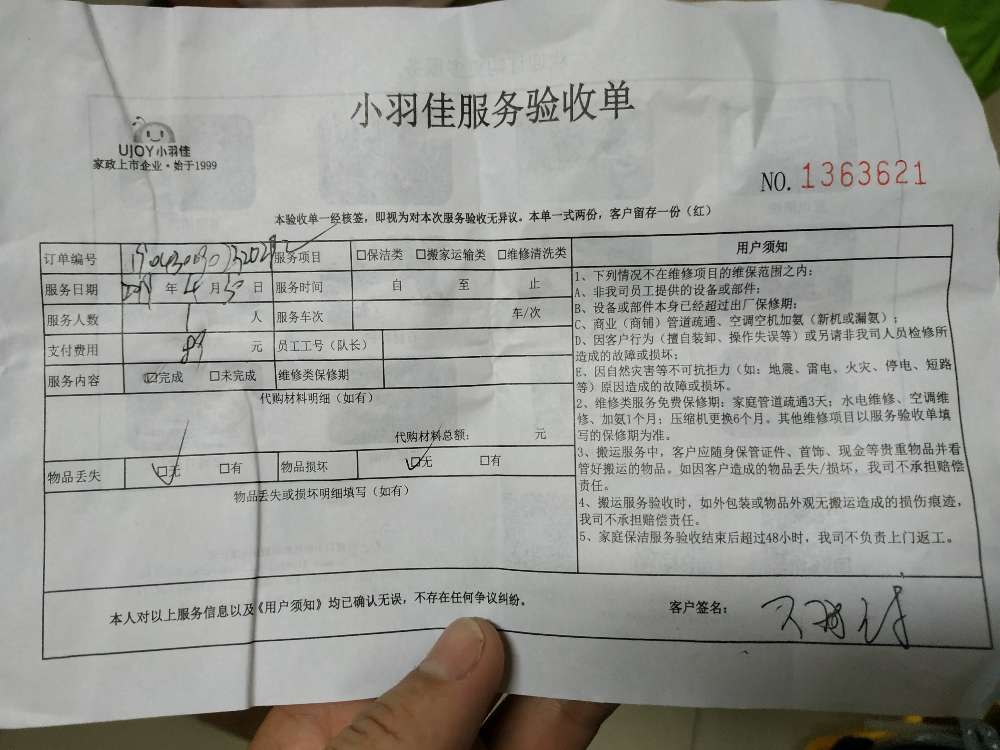 小羽佳服务验收单
UJOY小羽佳
家政上市企业·始于1999
NO.1363621
本验收单一经核签，即视为对本次服务验收无异议。本单一式两份，客户留存一份（红）
订单编号 服务项目 □保洁类 □搬家运输类 □维修清洗类
服务日期 年 4 月 30 日 服务时间 自 至 止
服务人数 1 人 服务车次 车/次
支付费用 89 元 员工工号（队长）
服务内容 ☑完成 □未完成 维修类保修期
代购材料明细（如有）
代购材料总额： 元
物品丢失 ☑无 □有 物品损坏 ☑无 □有
物品丢失或损坏明细填写（如有）
用户须知
1、下列情况不在维修项目的维保范围之内：
A、非我司员工提供的设备或部件；
B、设备或部件本身已经超过出厂保修期；
C、商业（商铺）管道疏通、空调空机加氨（新机或漏氨）；
D、因客户行为（擅自装卸、操作失误等）或另请非我司人员检修所
造成的故障或损坏；
E、因自然灾害等不可抗拒力（如：地震、雷电、火灾、停电、短路
等）原因造成的故障或损坏。
2、维修类服务免费保修期：家庭管道疏通3天；水电维修、空调维
修、加氨1个月；压缩机更换6个月。其他维修项目以服务验收单填
写的保修期为准。
3、搬运服务中，客户应随身保管证件、首饰、现金等贵重物品并看
管好搬运的物品。如因客户造成的物品丢失/损坏，我司不承担赔偿
责任。
4、搬运服务验收时，如外包装或物品外观无搬运造成的损伤痕迹，
我司不承担赔偿责任。
5、家庭保洁服务验收结束后超过48小时，我司不负责上门返工。
本人对以上服务信息以及《用户须知》均已确认无误，不存在任何争议纠纷。
客户签名：